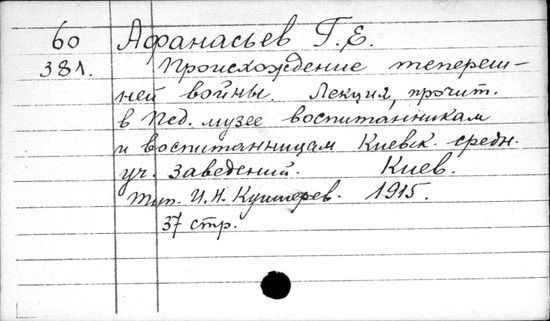 60 Афанасьев Г.Е.
381. Происхождение тепереш-
ней войны. Лекция, прочит.
в Пед. музее воспитанникам
и воспитанницам Киевск. средн.
уч. заведений. Киев.
Тип. И.Н. Кушнерев. 1915.
37 стр.